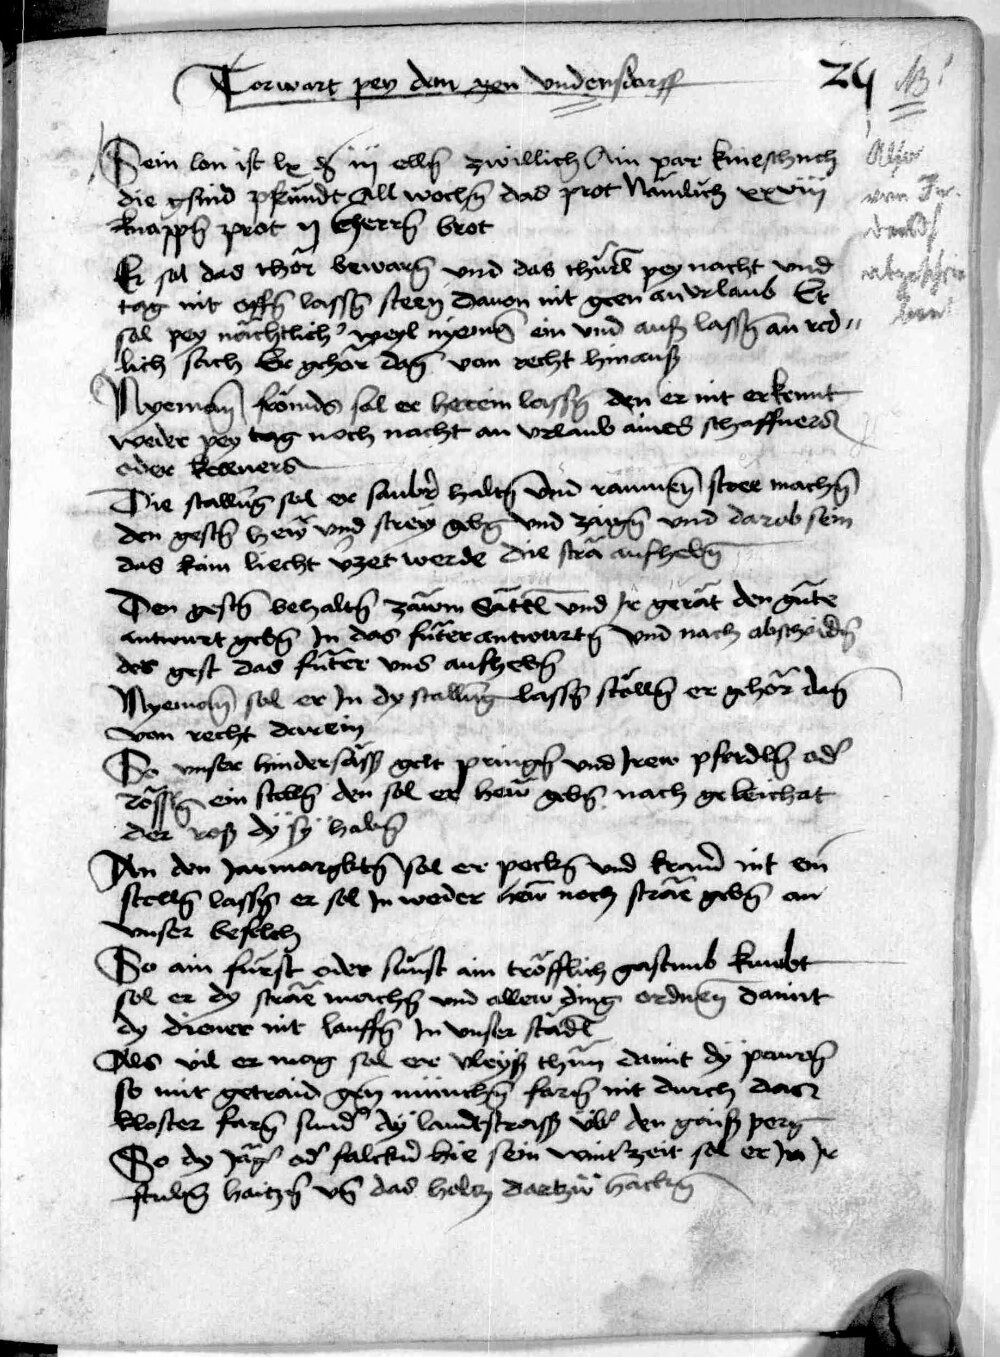 Torwart pey dem gen Undensdorff
24
NB!
Sein lon ist lx ₰ iij elln zwillich Ain par knieschuch
die gsind pfrundt All wochn das prot Nämlich xxviii
knappn prot ij Herrn brot
Er sol das thor bewarn und das thürl pey nacht und
tag nit offn lassn steen Davon nit geen an urlaub Er
sol pey nächtlicher weyl nyeman ein und auß lassn an red
lich sach Er gehör dan von recht hinauß
Nyeman frömds sol er herein lassn den er nit erkennt
weder pey tag noch nacht an urlaub aines schaffners
oder kellners
Die stallung sol er saubr haltn und raumen stree machn
den gestn hew und strey gebn und zaign und darob sein
das kain liecht verzet werde die strä aufhebn
Den gestn behaltn zäwm Sättl und Ir gerät den güte
antwurt gebn In das futer antwurtn und nach abschaidn
der gest das futer uns aufhebn
Nyeman sol er In dy stallung lassn stölln er gehör dan
von recht darein
So unser hindersässn gelt pringn und Irew pferdln od
rössln ein stelln den sol er hew gebn nach gelaichat
der roß dy sy habn
An den Jarmargktn sol er peckn und kramer nit ein
stelln lassn er sol In weder hew noch sträe gebn an
unser befelch
So ain fürst oder sunst ain träfflich gastung kumbt
sol er dy sträe machn und allew ding ordnen damit
dy diener nit lauffn In unser städl
Als vil er mag sol er vleyß thun damit dy pawrn
so mit getraid gen münchn farn nit durch das
kloster farn sunder dy landtstrass über den gaiß perg
So dy Jäger oder falckner hie sein winter zeit sol er In Ir
stubn haitzn und das holtz dartzu hackn